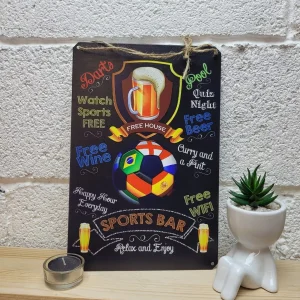 Darts
Pool
Watch
Sports
FREE
Quiz
Night
FREE HOUSE
Free
Beer
Free
Wine
Curry and
a Pint
Happy Hour
Everyday
Free
WiFi
SPORTS BAR
Relax and Enjoy